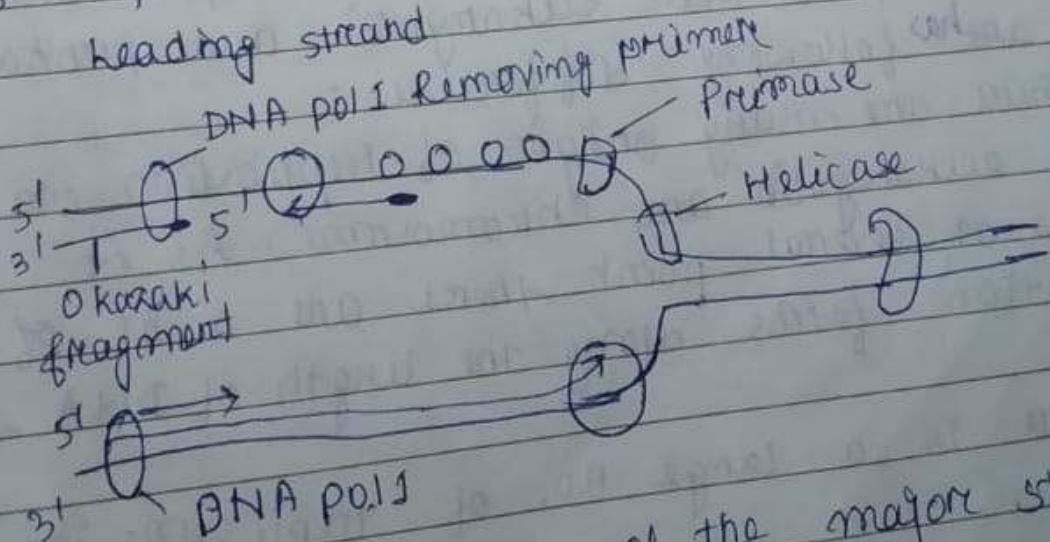 Leading streand
DNA pol I Removing primere
Preimase
Helicase
5'
3'
5'
Okazaki
freagment
5'
3'
DNA pol I
the majore